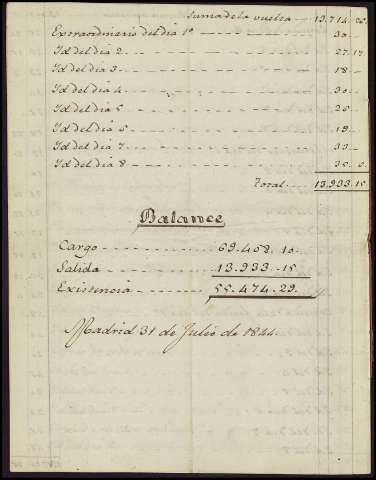 Suma de la vuelta 13.714. 26.
Extraordinario del dia 1º 30
Yd del dia 2 27. 17
Yd del dia 3 18
Yd del dia 4 30
Yd del dia 5 26
Yd del dia 6 19
Yd del dia 7 33
Yd del dia 8 35
Total 13.933. 15
Balance
Cargo 69.408. 10
Salida 13.933. 15
Existencia 55.474. 29
Madrid 31 de Julio de 1824.